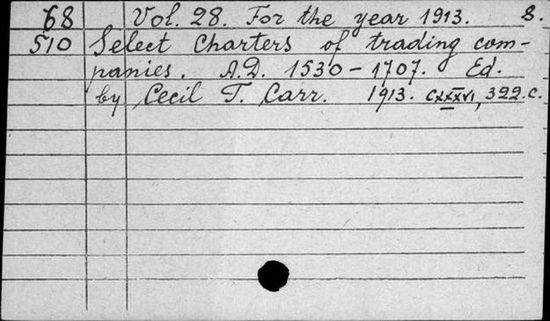 68 Vol. 28. For the year 1913. 8.
510 Select Charters of trading com-
panies. A.D. 1530-1707. Ed.
by Cecil T. Carr. 1913. CXXXVI, 322 c.